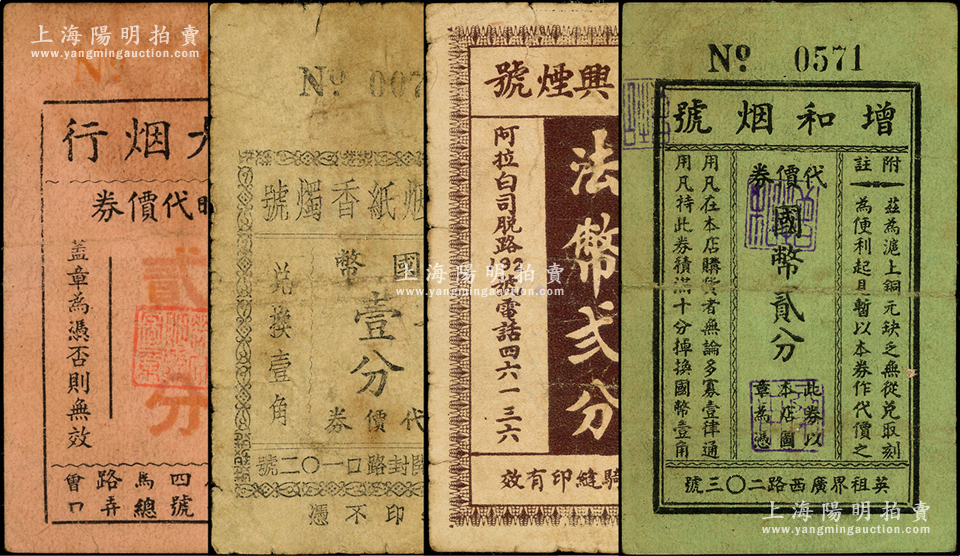 上海陽明拍賣
www.yangmingauction.com
Nº
烟行
代價券
貳
分
盖章為憑否則無效
四馬路
號總弄口
Nº 007
烟紙香燭號
國幣
壹分
兌換壹角
代價券
開封路口一〇二號
印不憑
興煙號
法幣弍分
阿拉白司脱路192號電話四六一三六
騎縫印有效
上海陽明拍賣
www.yangmingauction.com
Nº 0571
增和烟號
附註
茲為滬上銅元缺乏無從兌取刻
為便利起見暫以本券作代價之
代價券
國幣貳分
此券以
本店圖
章為憑
用凡在本店購貨者無論多寡壹律通
用凡持此券積滿十分掉換國幣壹角
英租界廣西路二〇三號
上海陽明拍賣
www.yangmingauction.com